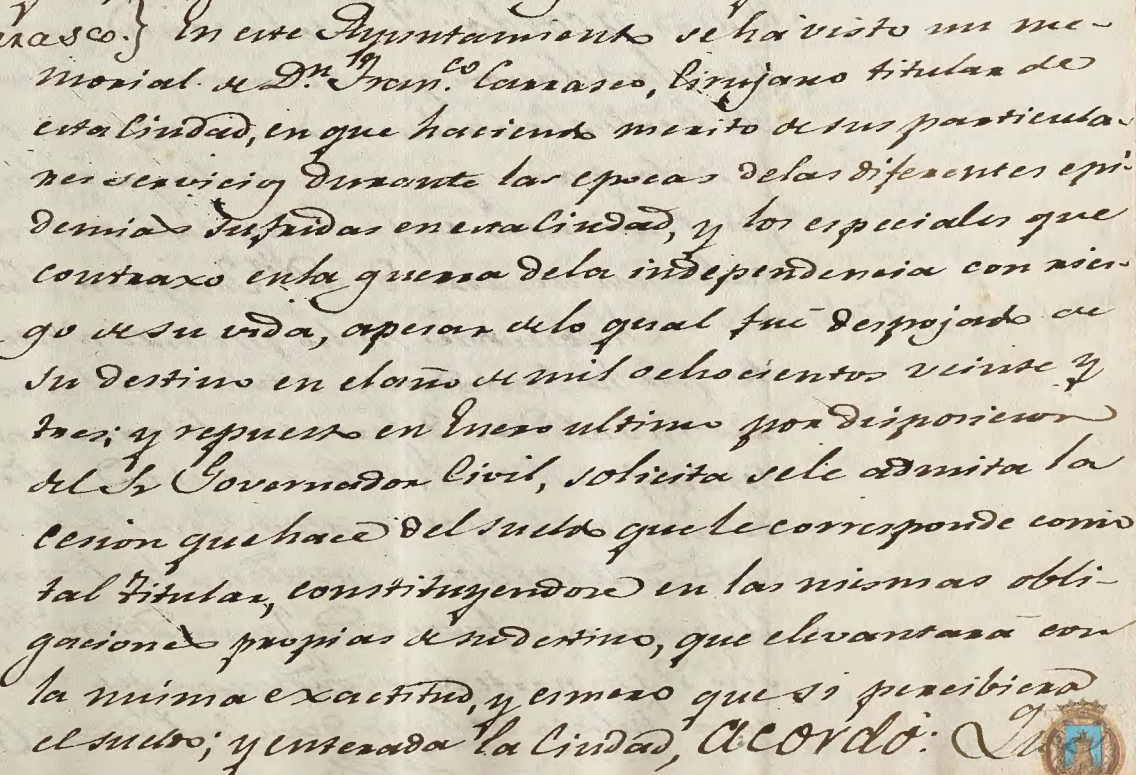 rrasco.} En este Ayuntamiento se ha visto un me-
morial de Dn. Franco. Carrasco, Cirujano titular de
esta Ciudad, en que haciendo merito de sus particula-
res servicios durante las epocas delas diferentes epi-
demias sufridas en esta Ciudad, y los especiales que
contraxo enla guerra dela independencia con ries-
go de su vida, apesar delo qual fué despojado de
su destino en el año de mil ochocientos veinte y
tres; y repuesto en Enero ultimo por disposicion
del Sr Governador Civil, solicita sele admita la
cesion que hace del sueldo que le corresponde como
tal titular, constituyendose en las mismas obli-
gaciones propias de su destino, que elevantará con
la misma exactitud, y esmero que si percibiera
el sueldo; y enterada la Ciudad, acordó: